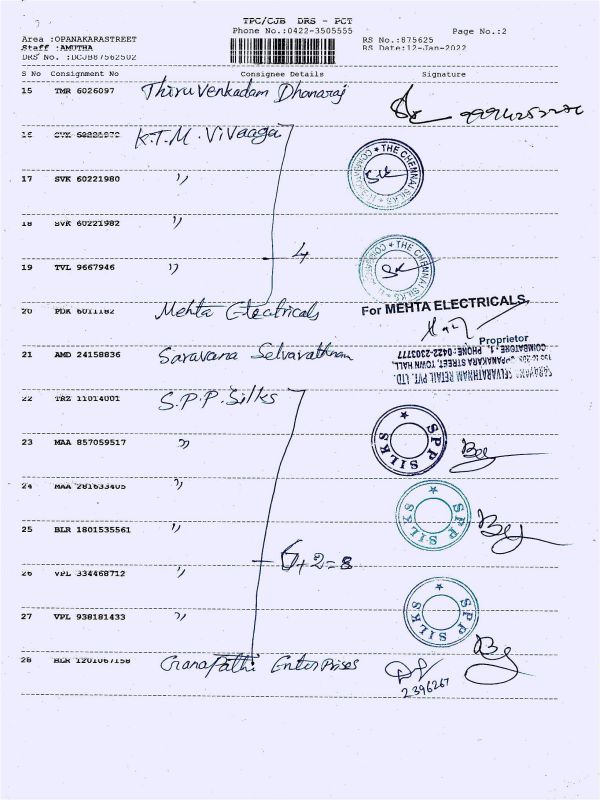 TPC/CJB DRS - PCT
Phone No.:0422-3505555 Page No.:2
Area :OPANAKARASTREET RS No.:875625
Staff :AMUTHA RS Date:12-Jan-2022
DRS No. :DCJB87562502
S No Consignment No Consignee Details Signature
15 TMR 6026097 Thiru Venkadam Dhanaraj
16 K.T.M. Vivaaga
THE CHENNAI SILKS
17 SVK 60221980 ,,
18 SVK 60221982 ,,
4
THE CHENNAI SILKS
19 TVL 9667946 ,,
20 PDK 6011182 Mehta Electricals
For MEHTA ELECTRICALS,
Proprietor
21 AMD 24158836 Saravana Selvarathnam
SELVARATHNAM RETAIL PVT. LTD.
OPPANAKARA STREET, TOWN HALL
COIMBATORE - 1, PHONE-0422-2303777
22 TRZ 11014001 S.P.P. Silks
23 MAA 857059517 ,,
SPP SILKS
24 MAA 281633405 ,,
SPP SILKS
25 BLR 1801535561 ,,
6+2=8
26 VPL 334468712 ,,
27 VPL 938181433 ,,
SPP SILKS
28 BLR 1201067158 GranaPathi Enterprises
2396267